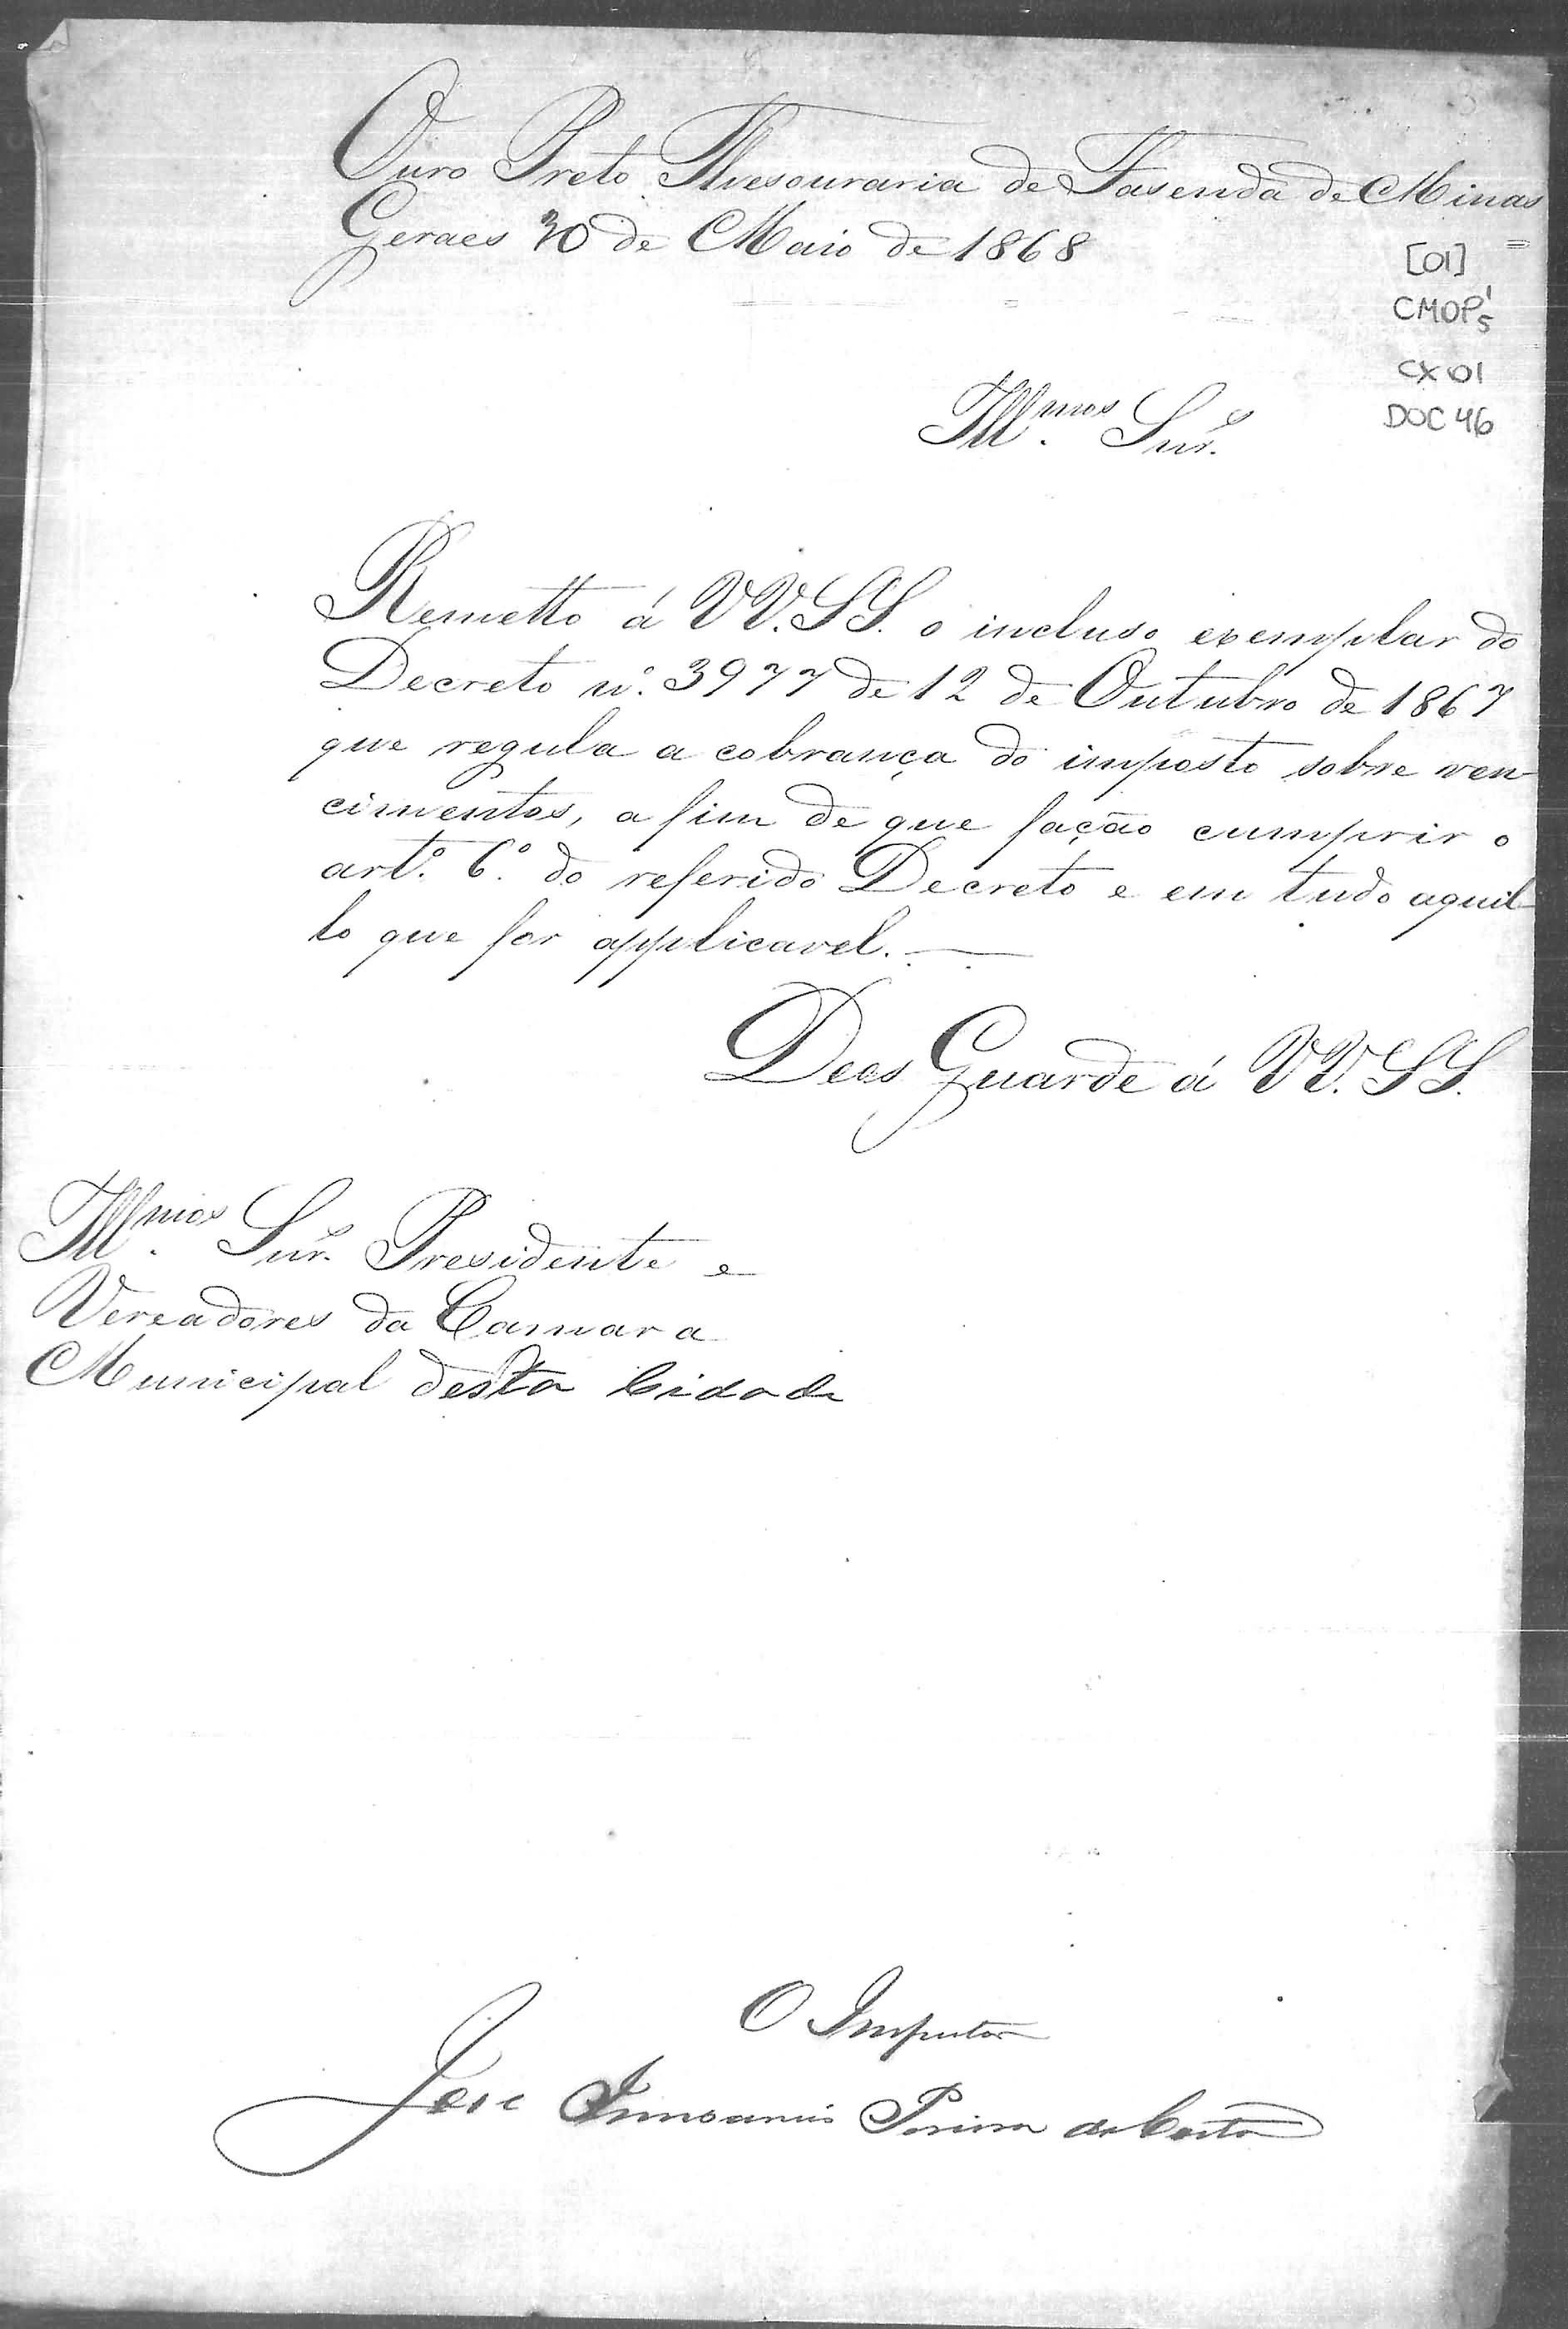 Ouro Preto Thesouraria de Fasenda de Minas
Geraes 30 de Maio de 1868
[01]
CMOP 1/5
CX 01
DOC 46
Illmos. Snrs.
Remetto á VV.SS. o incluso exemplar do
Decreto nº. 3977 de 12 de Outubro de 1867
que regula a cobrança do imposto sobre ven-
cimentos, a fim de que fação cumprir o
artº. 6º. do referido Decreto e em tudo aquil-
lo que for applicavel.
Deos Guarde á VV.SS.
Illmos. Snrs. Presidente e
Vereadores da Camara
Municipal desta Cidade
O Inspector
José Pereira da Costa